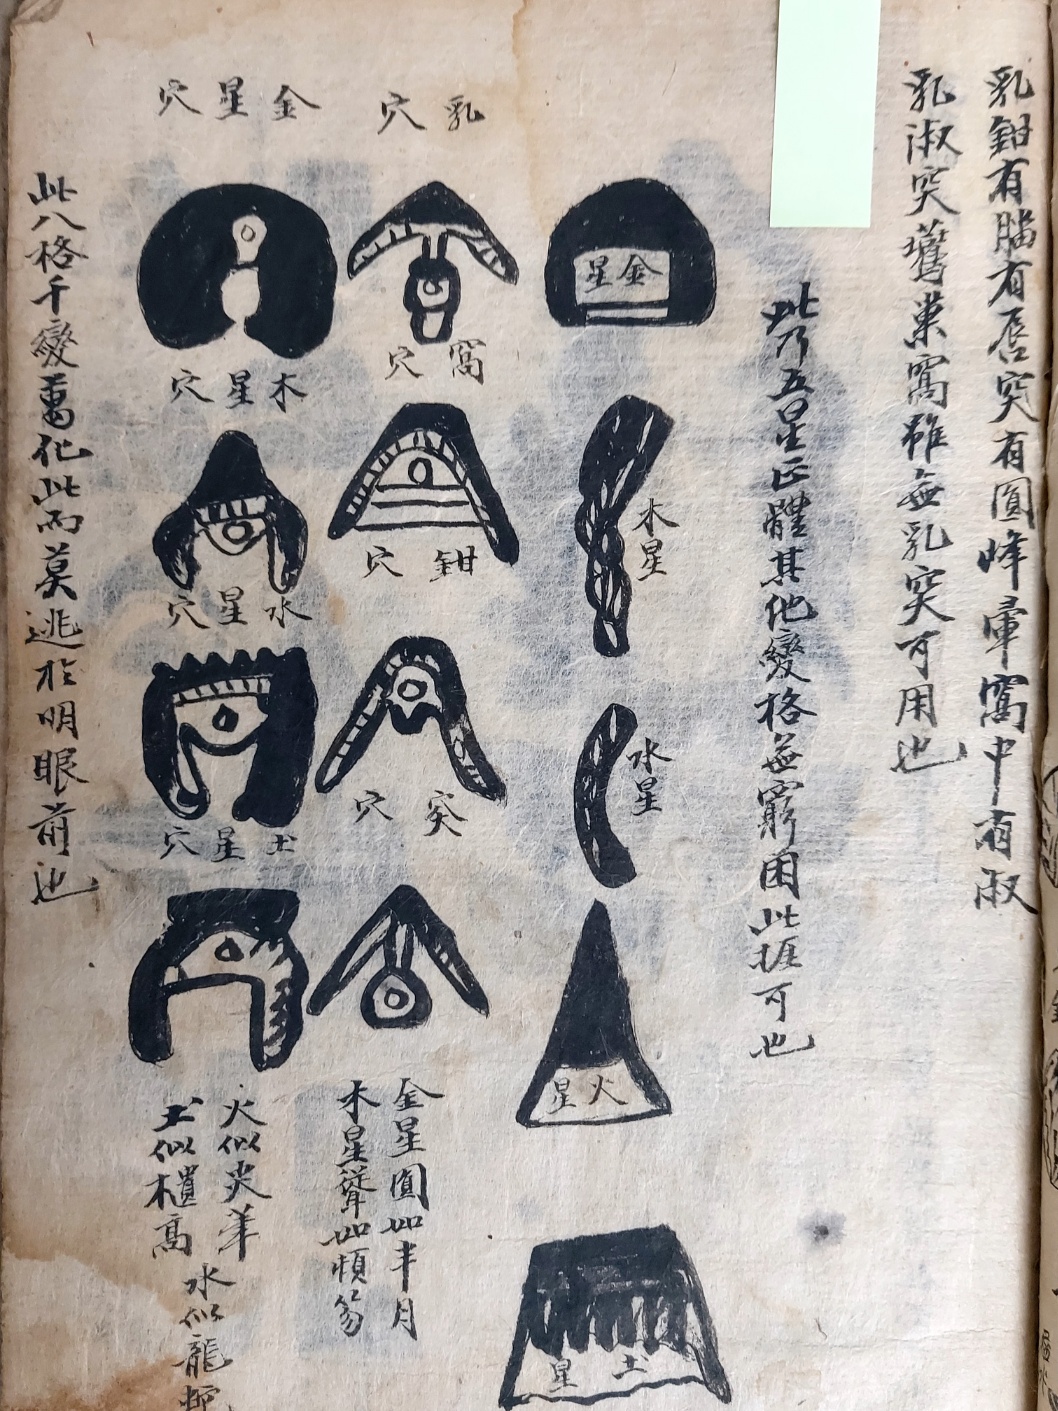 乳鉗有腦有唇突有圓峰暈窩中有淑
乳淑突舊巢窩雖無乳突可用也
此乃五星正體其他變格無窮因此捱可也
金星
木星
水星
火星
土星
乳穴
窩穴
鉗穴
突穴
金星圓如半月
木星聳如頓笏
金星穴
木星穴
水星穴
土星穴
火似尖筆
土似櫃高
水似龍
此八格千變萬化此而莫逃於明眼前也